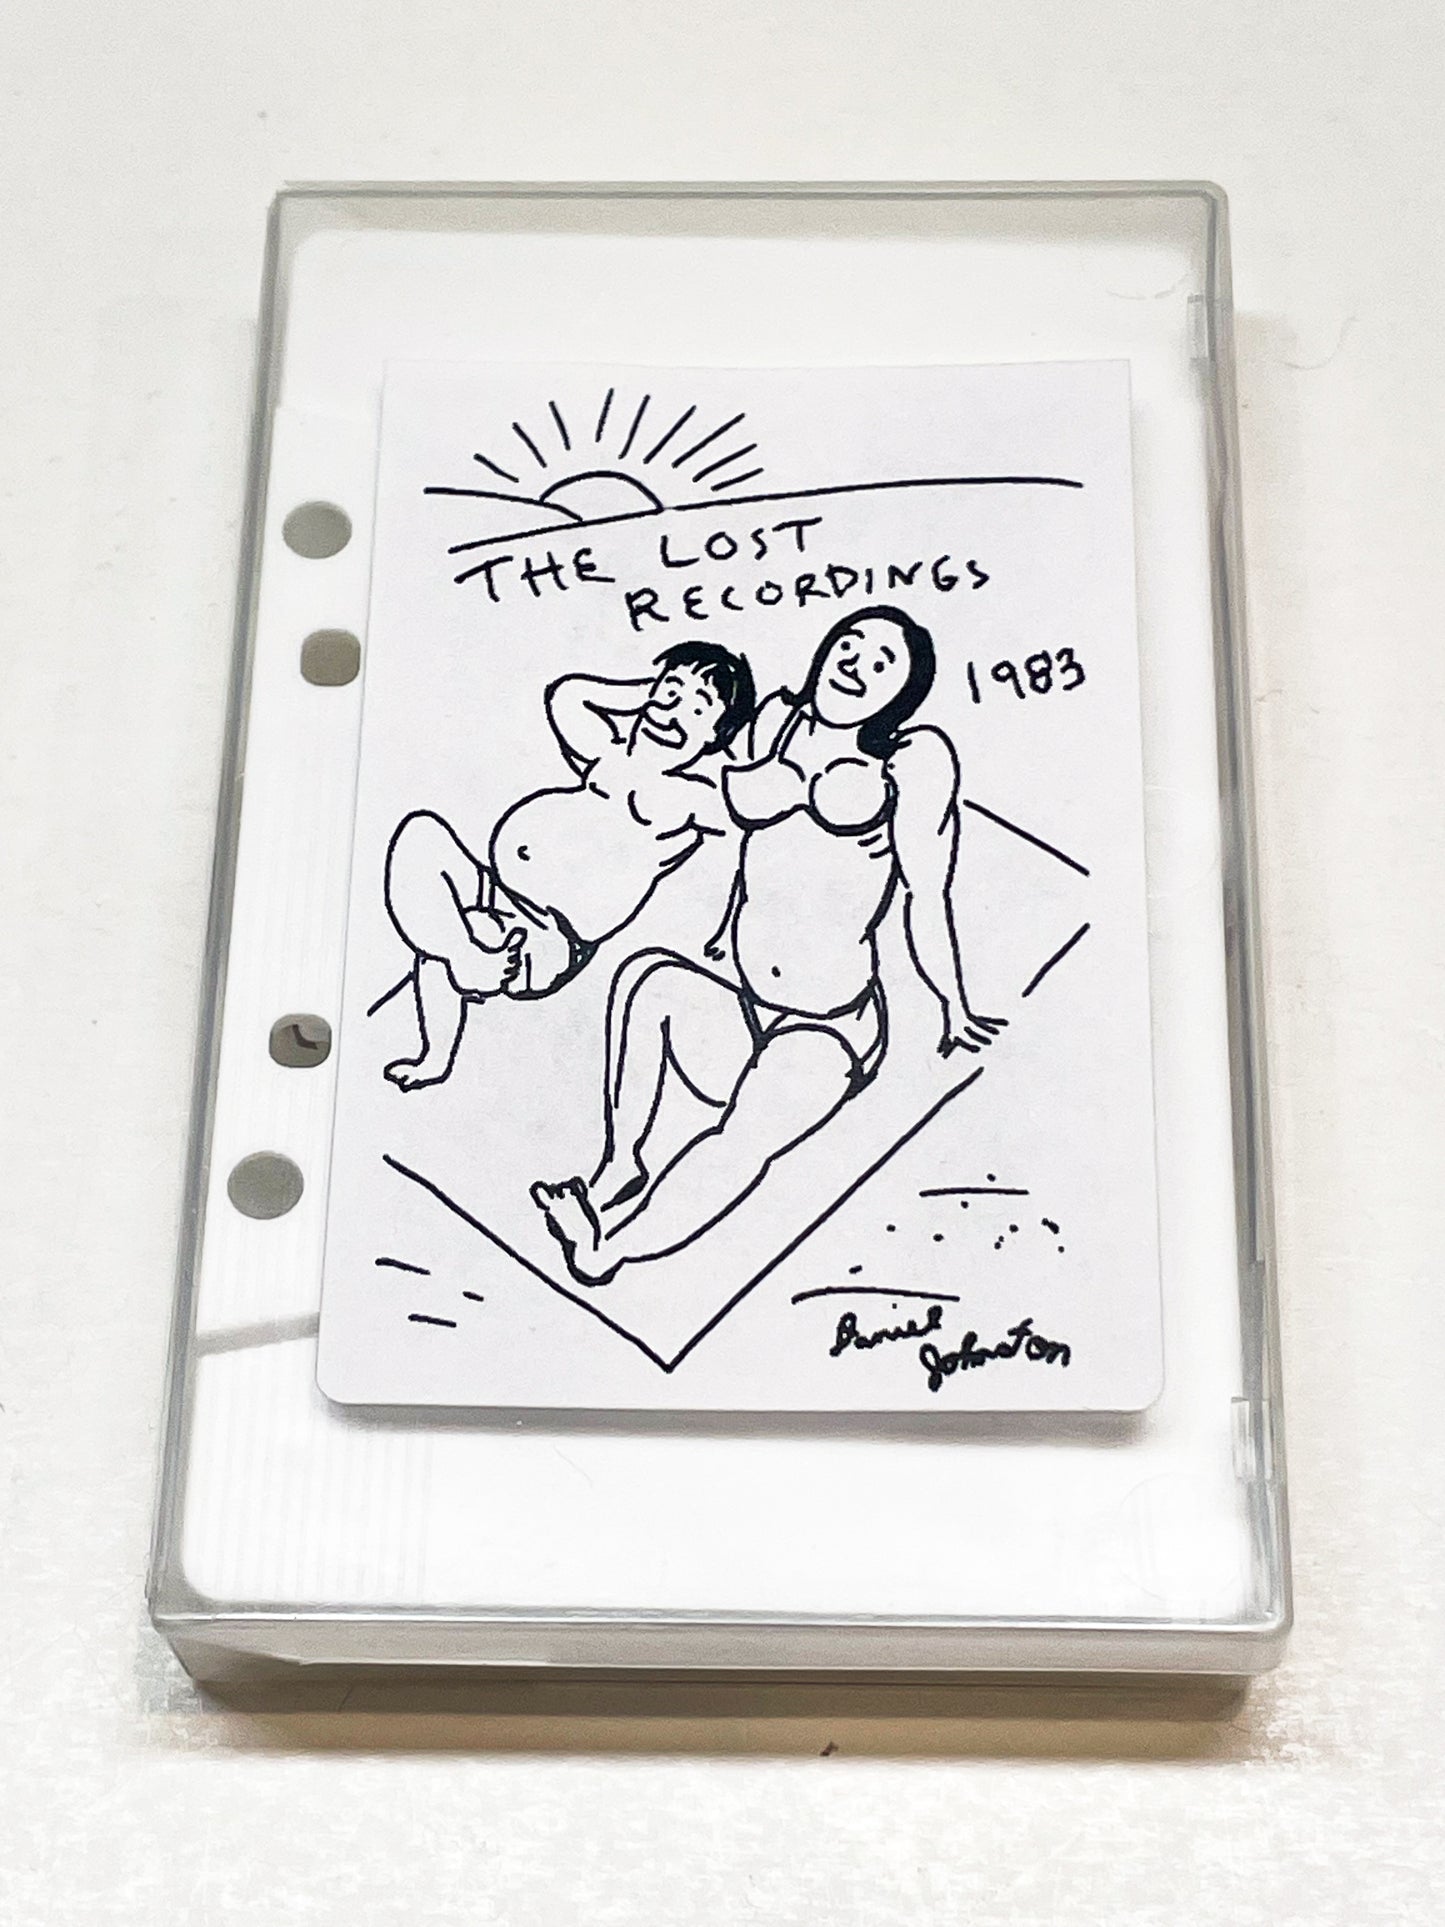 THE LOST
RECORDINGS
1983
Daniel
Johnston